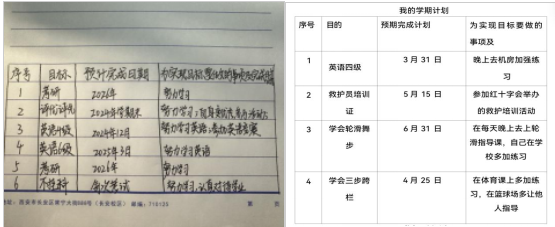 序号 目标 预计完成日期 为实现目标
1 考研 2026年 努力学习
2 评优评先 2024年学期末 努力学习,
3 英语四级 2024年12月 努力学习英语,
4 英语六级 2025年3月 努力学习英语
5 考研 2026年 努力学习
6 不挂科 每次考试 努力学习,认真对待学业
(长安校区) 邮编:
我的学期计划
序号 目的 预期完成计划 为实现目标要做的
事项及
1 英语四级 3月31日 晚上去机房加强练
习
2 救护员培训
证 5月15日 参加红十字会举办
的救护培训活动
3 学会轮滑舞
步 6月31日 在每天晚上去上轮
滑指导课,自己在学
校多加练习
4 学会三步跨
栏 4月25日 在体育课上多加练
习,在篮球场多让他
人指导